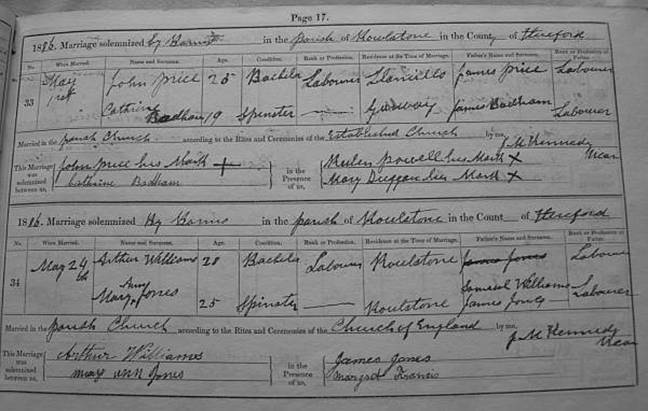 Page 17.
1886. Marriage solemnized by Banns in the parish of Rowlstone in the County of Hereford
No. When Married. Name and Surname. Age. Condition. Rank or Profession. Residence at the Time of Marriage. Father's Name and Surname. Rank or Profession of Father.
33 May 1st John Price 25 Bachelor Labourer Llancillo James Price Labourer
Catherine Badham 19 Spinster — James Badham Labourer
Married in the parish Church according to the Rites and Ceremonies of the Established Church by me, J M Kennedy Vicar
This Marriage was solemnized between us, John Price his Mark + in the Presence of us, Reuben Powell his Mark X
Catherine Badham Mary Duggan her Mark X
1886. Marriage solemnized By Banns in the parish of Rowlstone in the County of Hereford
No. When Married. Name and Surname. Age. Condition. Rank or Profession. Residence at the Time of Marriage. Father's Name and Surname. Rank or Profession of Father.
34 May 24th Arthur Williams 28 Bachelor Labourer Roulstone James Jones Labourer
Samuel Williams
Mary Ann Jones 25 Spinster — Roulstone James Jones Labourer
Married in the parish Church according to the Rites and Ceremonies of the Church of England by me, J M Kennedy Vicar
This Marriage was solemnized between us, Arthur Williams in the Presence of us, James Jones
Mary Ann Jones Margret Francis